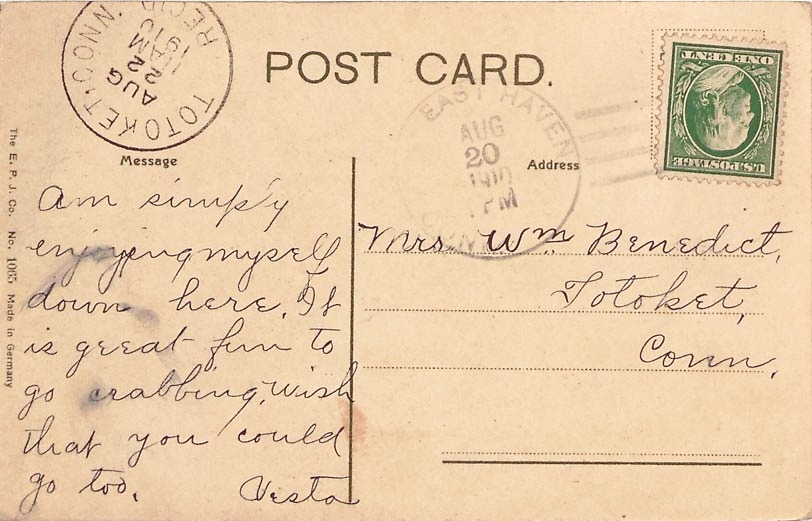 TOTOKET CONN.
AUG
22
11 AM
1910
REC'D
POST CARD.
EAST HAVEN
AUG
20
1910
PM
CONN.
U.S. POSTAGE
ONE CENT
Message
Address
The E. P. J. Co. No. 1065 Made in Germany
Am simply
enjoying myself
down here. It
is great fun to
go crabbing, wish
that you could
go too.
Vesta
Mrs. Wm Benedict,
Totoket,
Conn.